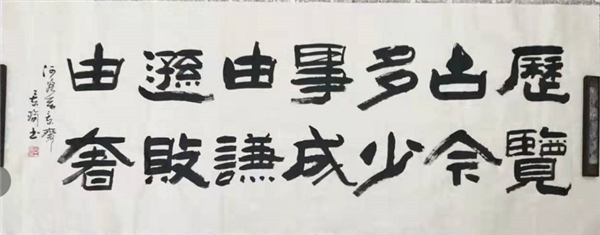 歷覽
古今
多少
事成
由謙
遜敗
由奢